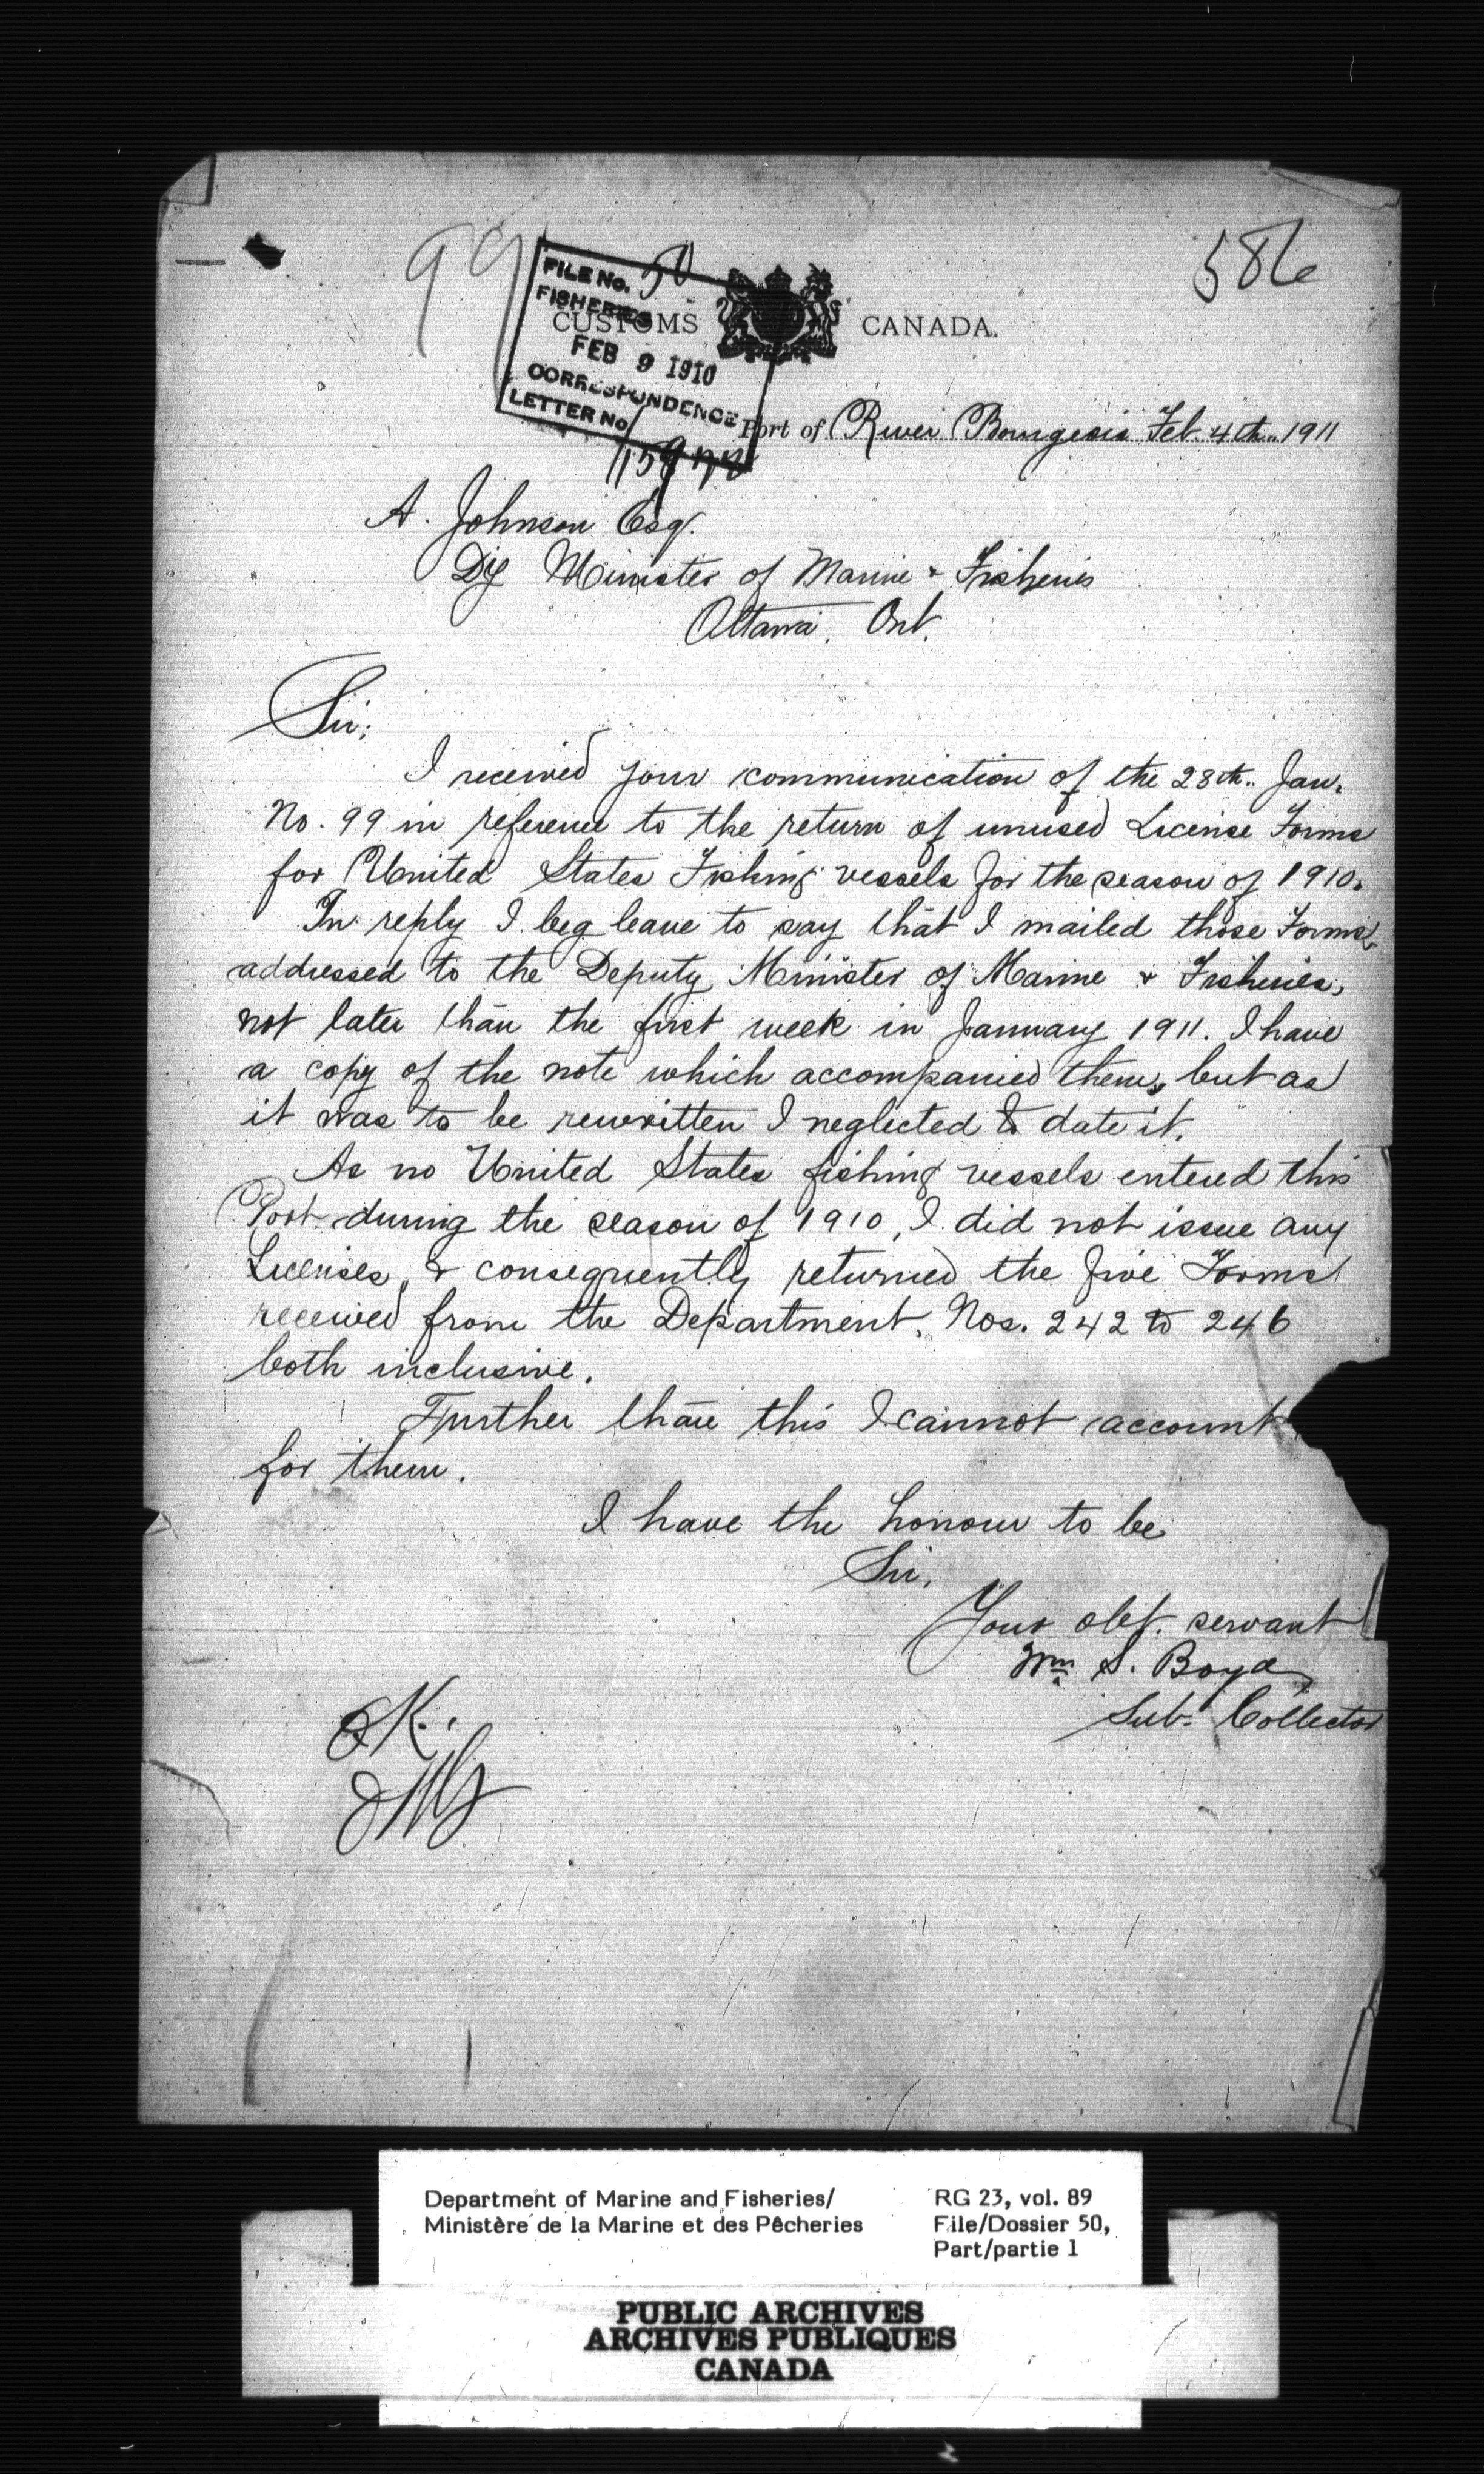 99
586
FILE No. 50
FISHERIES
FEB 9 1910
CORRESPONDENCE
LETTER No
CUSTOMS CANADA.
Port of River Bourgeois Feb. 4th. 1911
A. Johnson Esq.
Dy Minister of Marine & Fisheries
Ottawa. Ont.
Sir;
I received your communication of the 28th. Jan.
No. 99 in reference to the return of unused License Forms
for United States Fishing vessels for the season of 1910.
In reply I beg leave to say that I mailed those Forms
addressed to the Deputy Minister of Marine & Fisheries,
not later than the first week in January 1911. I have
a copy of the note which accompanied them, but as
it was to be rewritten I neglected to date it.
As no United States fishing vessels entered this
Port during the season of 1910, I did not issue any
Licenses, & consequently returned the five Forms
received from the Department, Nos. 242 to 246
both inclusive.
Further than this I cannot account
for them.
I have the honour to be
Sir,
Your obt. servant
Wm S. Boyd
Sub-Collector
OK.
Department of Marine and Fisheries/
Ministère de la Marine et des Pêcheries
RG 23, vol. 89
File/Dossier 50,
Part/partie 1
PUBLIC ARCHIVES
ARCHIVES PUBLIQUES
CANADA